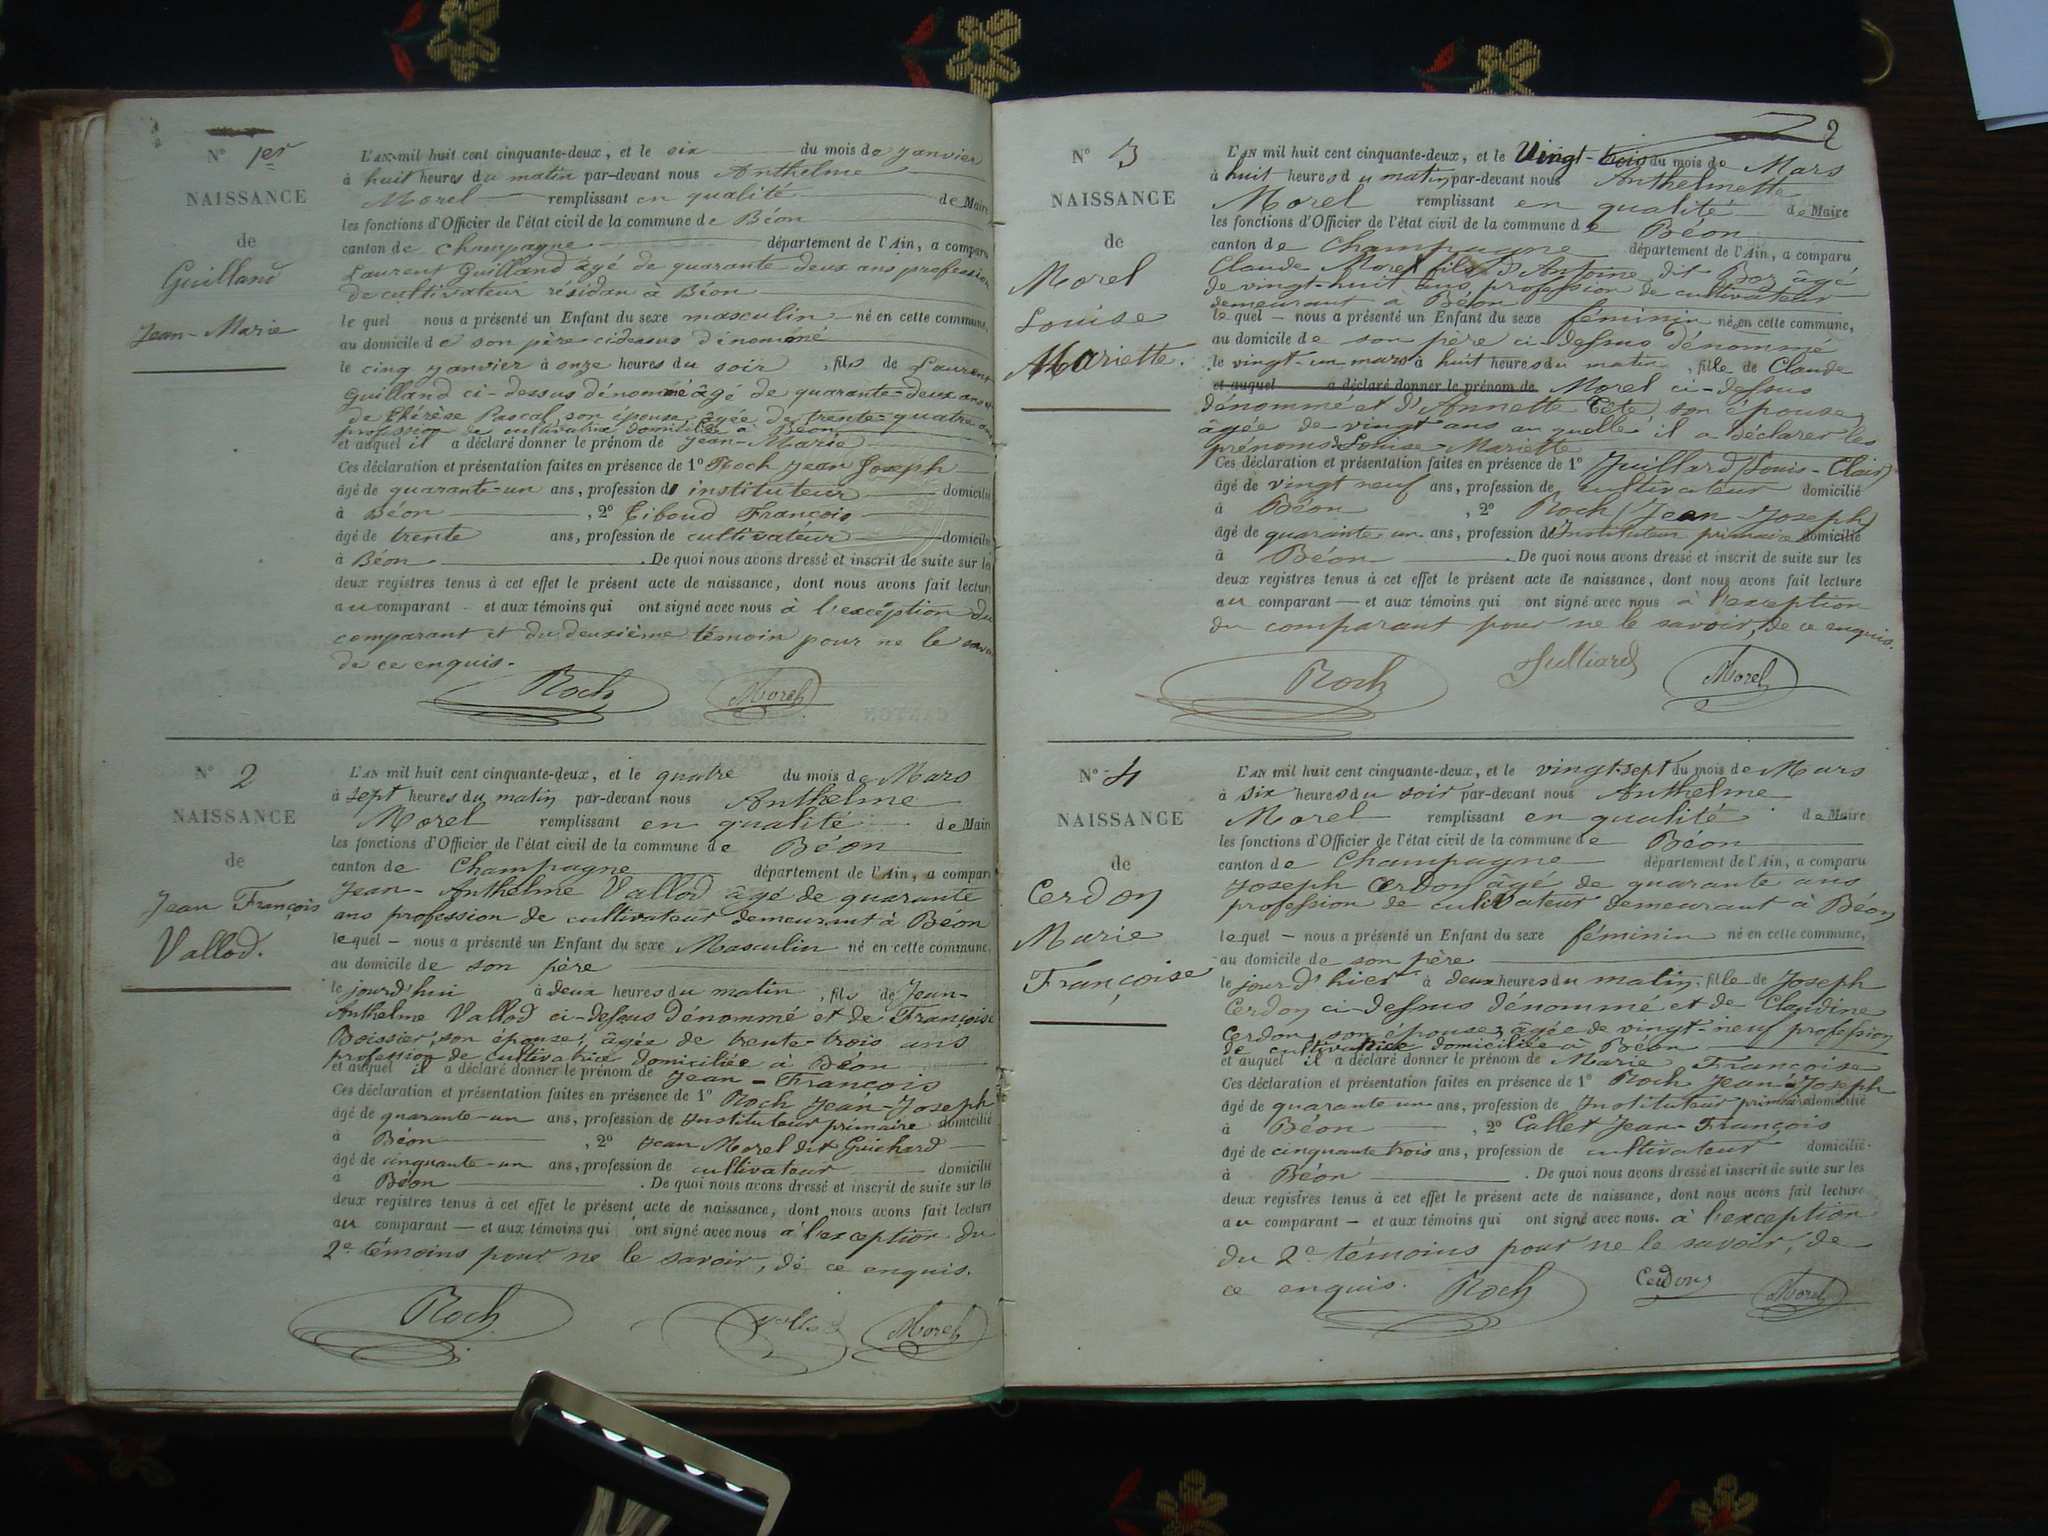 N° 1er
NAISSANCE
de
Guilland
Jean-Marie
L'AN mil huit cent cinquante-deux, et le six du mois de janvier
à huit heures du matin par-devant nous Anthelme
Morel remplissant en qualité de Maire
les fonctions d'Officier de l'état civil de la commune de Béon
canton de Champagne département de l'Ain, a comparu
Laurent Guilland âgé de quarante-deux ans profession
de cultivateur résidan à Béon
le quel nous a présenté un Enfant du sexe masculin né en cette commune,
au domicile de son père cidessus dénommé
le cinq janvier à onze heures du soir, fils de Laurent
Guilland ci-dessus dénommé âgé de quarante-deux ans et
de Thérèse Pascal son épouse âgée de trente-quatre ans
profession de cultivatrice domiciliée à Béon
et auquel il a déclaré donner le prénom de Jean-Marie
Ces déclaration et présentation faites en présence de 1° Roch Jean Joseph
âgé de quarante-un ans, profession d' instituteur domicilié
à Béon, 2° Tiboud François
âgé de trente ans, profession de cultivateur domicilié
à Béon. De quoi nous avons dressé et inscrit de suite sur les
deux registres tenus à cet effet le présent acte de naissance, dont nous avons fait lecture
au comparant et aux témoins qui ont signé avec nous à l'exception du
comparant et du deuxième témoin pour ne le savoir
de ce enquis.
Roch Morel
N° 2
NAISSANCE
de
Jean François
Vallod.
L'AN mil huit cent cinquante-deux, et le quatre du mois de Mars
à sept heures du matin par-devant nous Anthelme
Morel remplissant en qualité de Maire
les fonctions d'Officier de l'état civil de la commune de Béon
canton de Champagne département de l'Ain, a comparu
Jean-Anthelme Vallod âgé de quarante
ans profession de cultivateur demeurant à Béon
lequel – nous a présenté un Enfant du sexe Masculin né en cette commune,
au domicile de son père
le jourd'hui à deux heures du matin, fils de Jean-
Anthelme Vallod ci-dessus dénommé et de Françoise
Boissier, son épouse, âgée de trente-trois ans
profession de cultivatrice domiciliée à Béon
et auquel il a déclaré donner le prénom de Jean-François
Ces déclaration et présentation faites en présence de 1° Roch Jean-Joseph
âgé de quarante-un ans, profession de Instituteur primaire domicilié
à Béon, 2° Jean Morel dit Guichard
âgé de cinquante-un ans, profession de cultivateur domicilié
à Béon. De quoi nous avons dressé et inscrit de suite sur les
deux registres tenus à cet effet le présent acte de naissance, dont nous avons fait lecture
au comparant – et aux témoins qui ont signé avec nous à l'exception du
2e témoins pour ne le savoir, de ce enquis.
Roch Morel
2
N° 3
NAISSANCE
de
Morel
Louise
Mariette.
L'AN mil huit cent cinquante-deux, et le Vingt-trois du mois de Mars
à huit heures du matin par-devant nous Anthelmette
Morel remplissant en qualité de Maire
les fonctions d'Officier de l'état civil de la commune de Béon
canton de Champagne département de l'Ain, a comparu
Claude Morel fils d'Antoine dit Boz âgé
de vingt-huit ans, profession de cultivateur
demeurant à Béon
le quel – nous a présenté un Enfant du sexe féminin né en cette commune,
au domicile de son père ci-dessus dénommé
le vingt-un mars à huit heures du matin, fille de Claude
et auquel a déclaré donner le prénom de Morel ci-dessus
dénommé et d'Annette Tête son épouse
âgée de vingt ans au quelle il a déclarer les
prénoms de Louise-Mariette
Ces déclaration et présentation faites en présence de 1° Juillard (Louis-Clair)
âgé de vingt neuf ans, profession de cultivateur domicilié
à Béon, 2° Roch (Jean-Joseph)
âgé de quarante un ans, profession d'Instituteur primaire domicilié
à Béon. De quoi nous avons dressé et inscrit de suite sur les
deux registres tenus à cet effet le présent acte de naissance, dont nous avons fait lecture
au comparant – et aux témoins qui ont signé avec nous à l'exception
du comparant pour ne le savoir, de ce enquis.
Roch Julliard Morel
N° 4
NAISSANCE
de
Cerdon
Marie
Françoise
L'AN mil huit cent cinquante-deux, et le vingt-sept du mois de Mars
à six heures du soir par-devant nous Anthelme
Morel remplissant en qualité de Maire
les fonctions d'Officier de l'état civil de la commune de Béon
canton de Champagne département de l'Ain, a comparu
Joseph Cerdon âgé de quarante ans
profession de cultivateur demeurant à Béon
lequel – nous a présenté un Enfant du sexe féminin né en cette commune,
au domicile de son père
le jour d'hier à deux heures du matin, fille de Joseph
Cerdon ci-dessus dénommé et de Claudine
Cerdon, son épouse, âgée de vingt-neuf profession
de cultivatrice domiciliée à Béon
et auquel il a déclaré donner le prénom de Marie Françoise
Ces déclaration et présentation faites en présence de 1° Roch Jean-Joseph
âgé de quarante un ans, profession de Instituteur primaire domicilié
à Béon, 2° Callet Jean-François
âgé de cinquante trois ans, profession de cultivateur domicilié
à Béon. De quoi nous avons dressé et inscrit de suite sur les
deux registres tenus à cet effet le présent acte de naissance, dont nous avons fait lecture
au comparant – et aux témoins qui ont signé avec nous. à l'exception
du 2e témoins pour ne le savoir, de
ce enquis. Roch Cerdon Morel